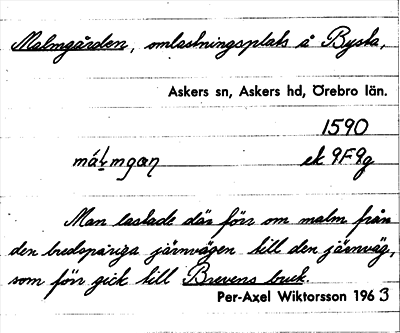 Malmgården, omlastningsplats å Bysta,
Askers sn, Askers hd, Örebro län.
1590
ek 9F9g
Man lastade där förr om malm från
den bredspåriga järnvägen till den järnväg,
som förr gick till Brevens bruk.
Per-Axel Wiktorsson 1963